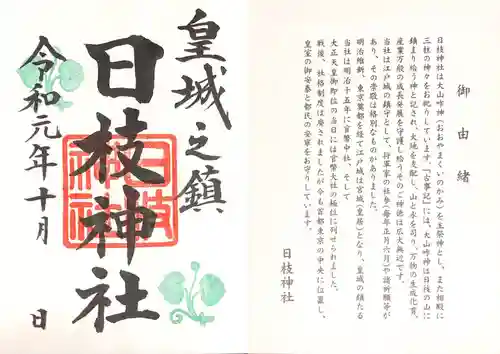 皇城之鎮
日枝神社
令和元年十月 日
日枝神社
御由緒
日枝神社は大山咋神（おおやまくいのかみ）を主祭神とし、また相殿に
三柱の神々をお祀りしています。『古事記』には、大山咋神は日枝の山に
鎮まり給う神と記され、大地を支配し、山と水を司り、万物の生成化育、
産業万般の成長発展を守護し給うそのご神徳は広大無辺です。
当社は江戸城の鎮守として、将軍家の社参（毎年正月六月）や諸祈願等が
あり、その崇敬は格別なものがありました。
明治維新、東京奠都を経て江戸城は宮城（皇居）となり、皇城の鎮たる
当社は明治十五年に官幣中社、そして
大正天皇御即位の当日には官幣大社の極位に列せられました。
戦後、社格制度は廃されましたが今も首都東京の中央に位置し、
皇室の御安泰と都民の安寧をお守りしています。
日枝神社